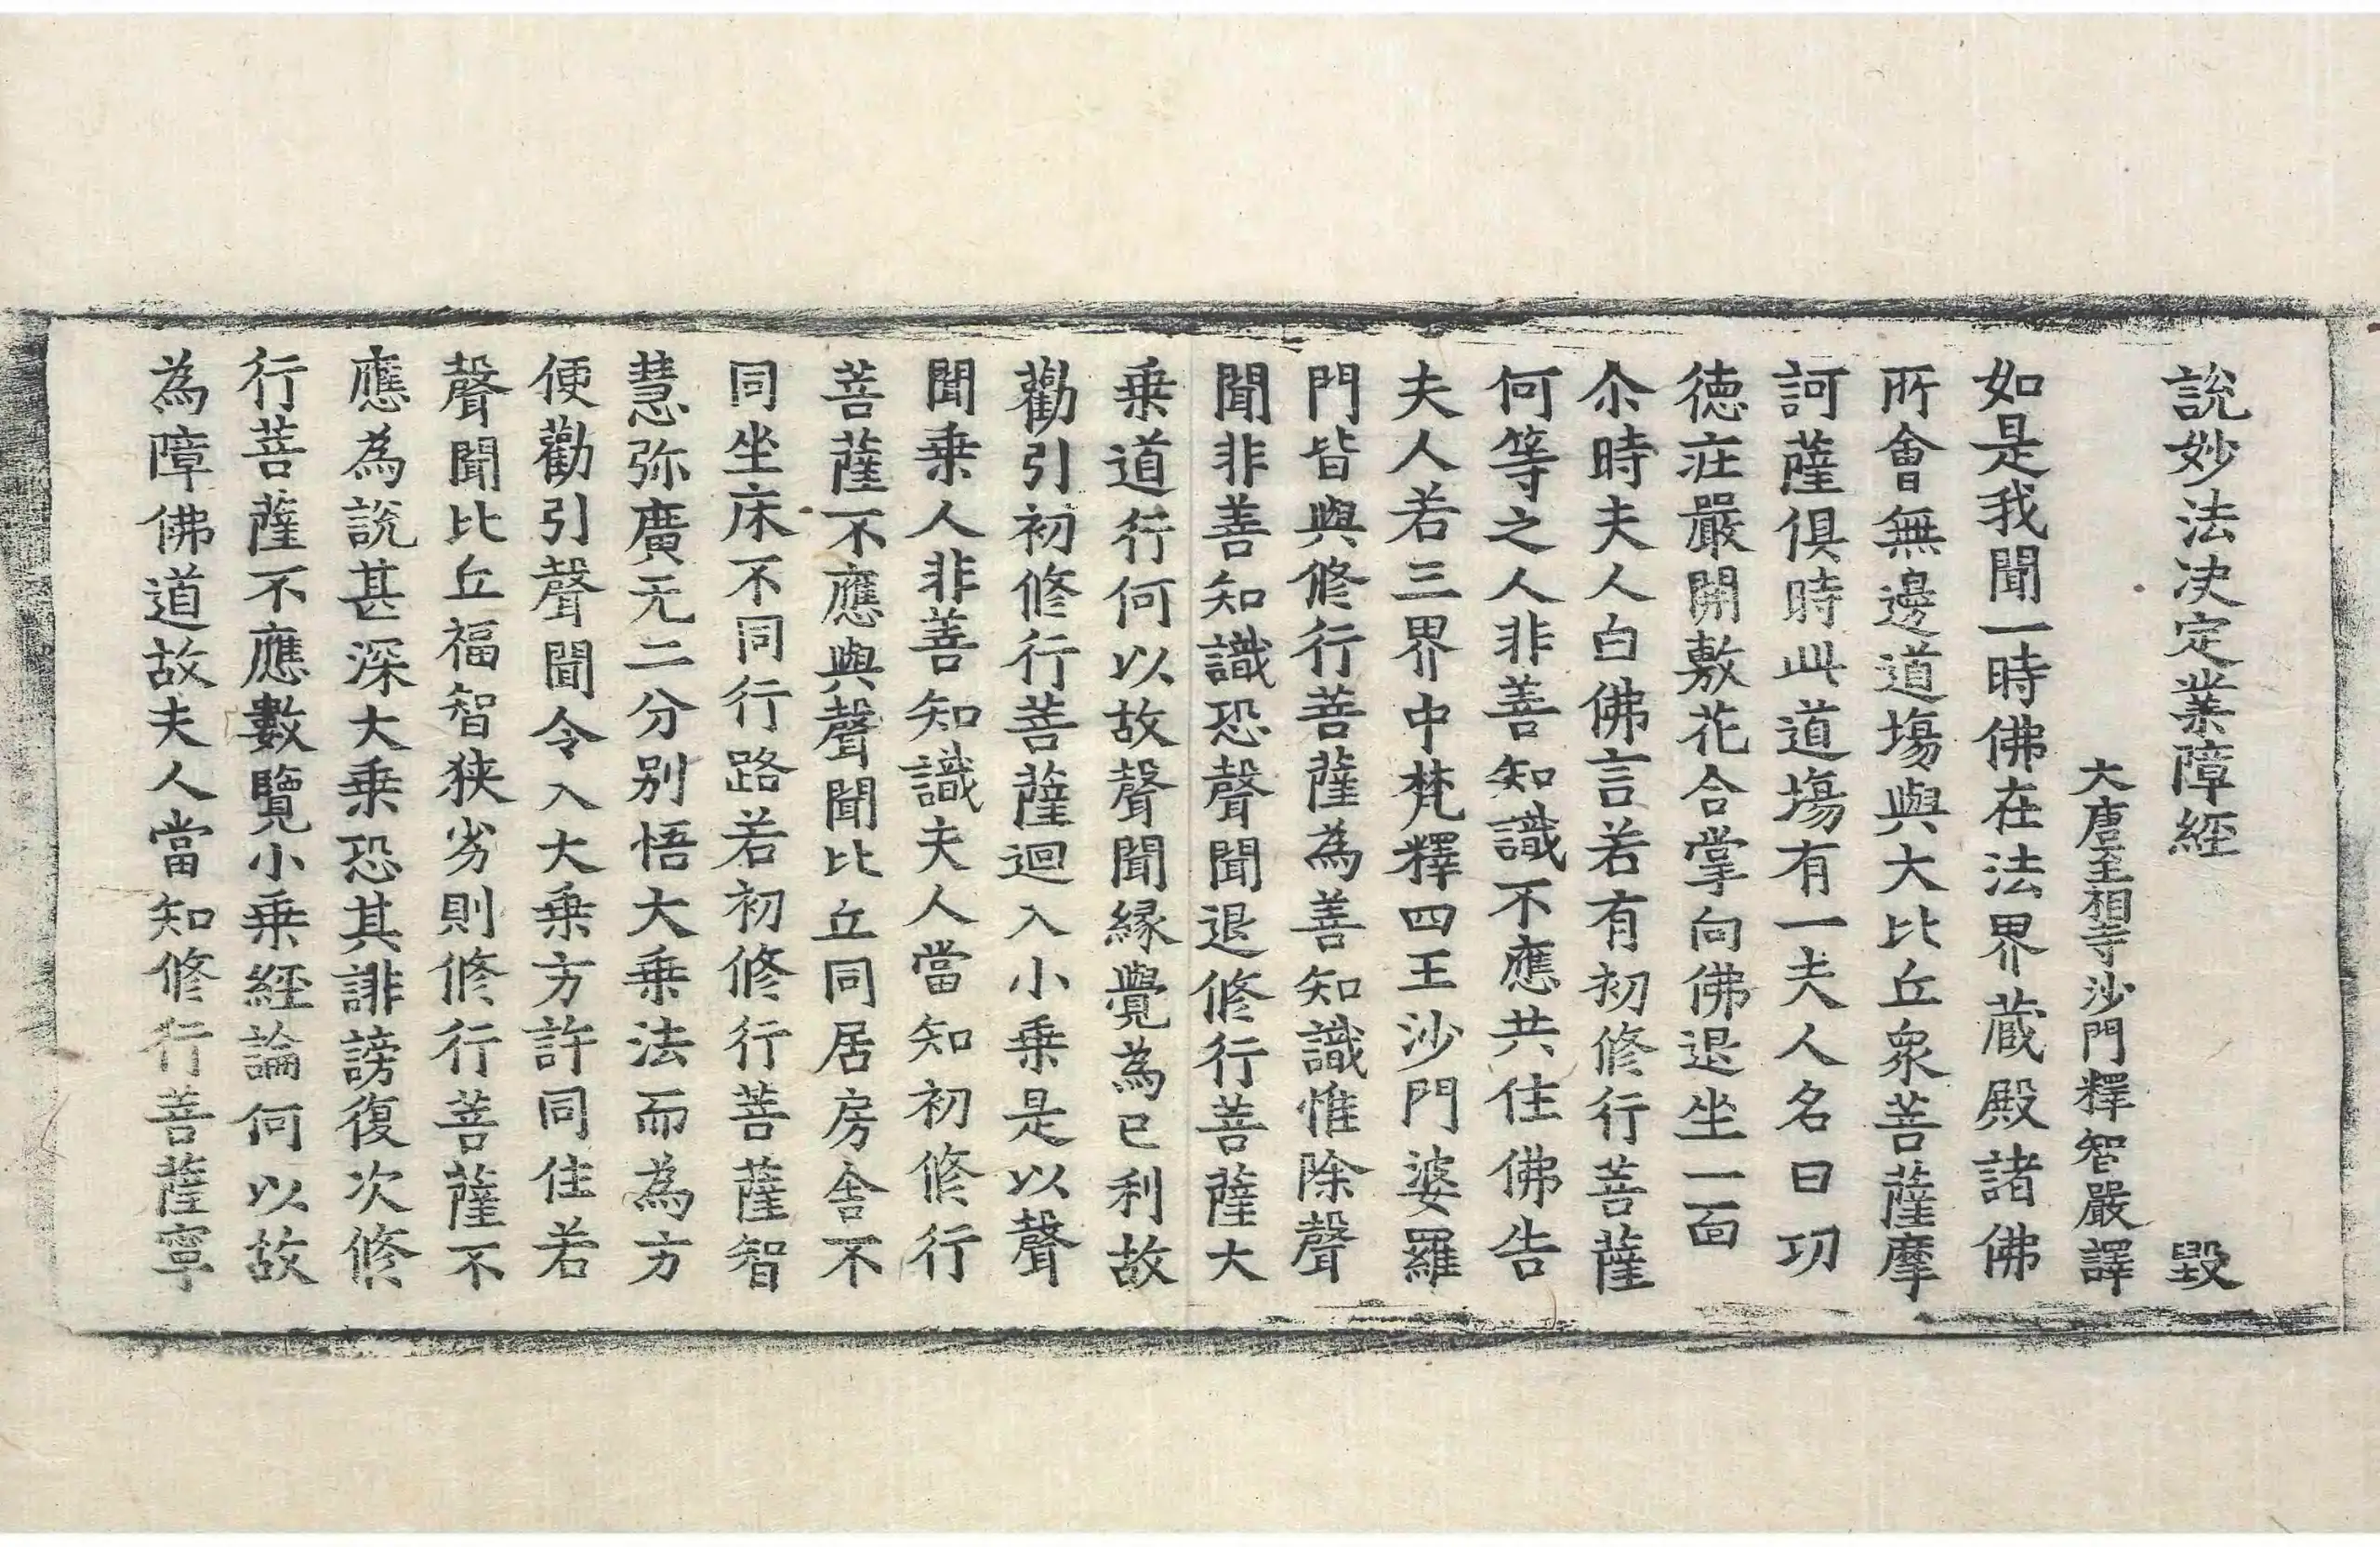 說妙法決定業障經 毀
大唐至相寺沙門釋智嚴譯
如是我聞一時佛在法界蔵殿諸佛
所會無邊道場與大比丘衆菩薩摩
訶薩俱時此道場有一夫人名曰功
德莊嚴開敷花合掌向佛退坐一面
尒時夫人白佛言若有初修行菩薩
何等之人非善知識不應共住佛告
夫人若三界中梵釋四王沙門婆羅
門皆與修行菩薩為善知識惟除聲
聞非善知識恐聲聞退修行菩薩大
乗道行何以故聲聞縁覺為已利故
勸引初修行菩薩迴入小乗是以聲
聞乗人非善知識夫人當知初修行
菩薩不應與聲聞比丘同居房舎不
同坐床不同行路若初修行菩薩智
慧弥廣无二分別悟大乗法而為方
便勸引聲聞令入大乗方許同住若
聲聞比丘福智狹劣則修行菩薩不
應為説甚深大乗恐其誹謗復次修
行菩薩不應數覽小乗經論何以故
為障佛道故夫人當知修行菩薩寧